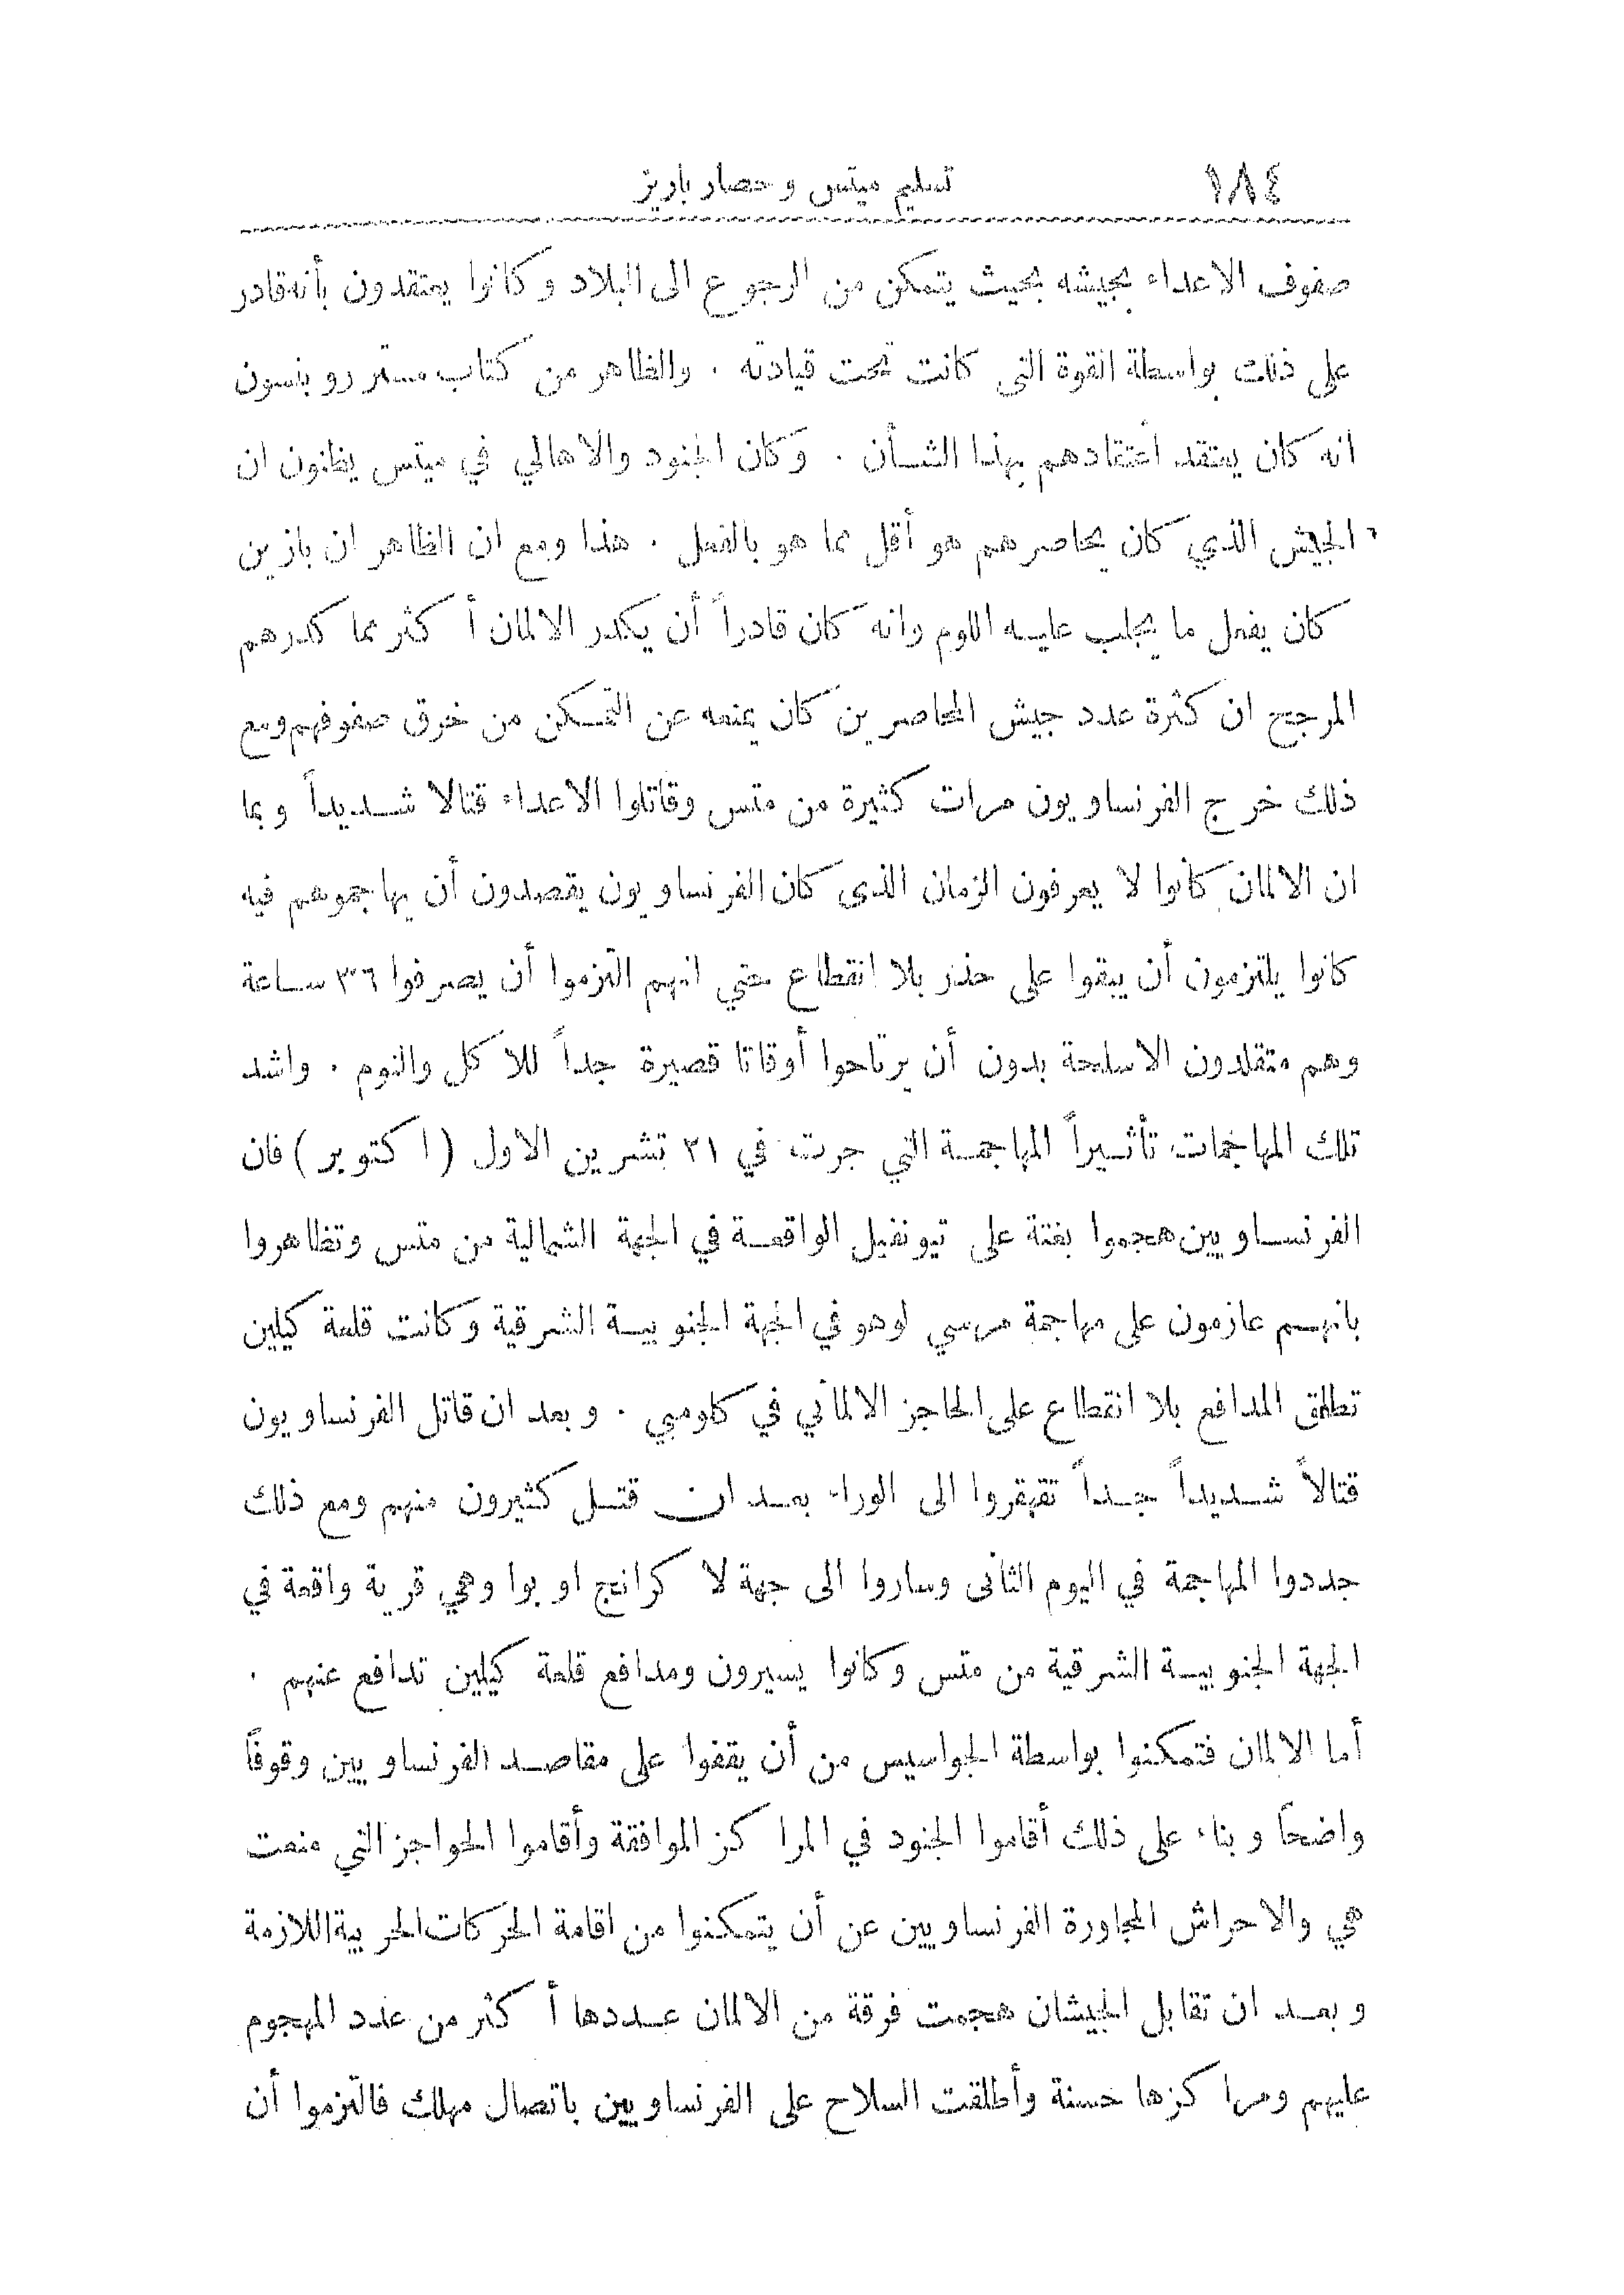 ١٨٤ تسليم ميتس وحصار باريز
صفوف الاعداء بجيشه بحيث يتمكن من الرجوع الى البلاد وكانوا يعتقدون بأنه قادر
على ذلك بواسطة القوة التى كانت تحت قيادته . والظاهر من كتاب مستر روبنسون
انه كان يعتقد اعتقادهم بهذا الشأن . وكان الجنود والاهالي في ميتس يظنون ان
الجيش الذي كان يحاصرهم هو أقل مما هو بالفعل . هذا ومع ان الظاهر ان بازين
كان يفعل ما يجلب عليه اللوم وانه كان قادراً أن يكدر الالمان أكثر مما كدرهم
المرجح ان كثرة عدد جيش المحاصرين كان يمنعه عن التمكن من خرق صفوفهم ومع
ذلك خرج الفرنساويون مرات كثيرة من متس وقاتلوا الاعداء قتالا شديداً وبما
ان الالمان كانوا لا يعرفون الزمان الذى كان الفرنساويون يقصدون أن يهاجموهم فيه
كانوا يلتزمون أن يبقوا على حذر بلا انقطاع حتي انهم التزموا أن يصرفوا ٣٦ ساعة
وهم متقلدون الاسلحة بدون أن يرتاحوا أوقاتا قصيرة جداً للاكل والنوم . واشد
تلك المهاجمات تأثيراً المهاجمة التي جرت في ٢١ تشرين الاول (اكتوبر) فان
الفرنساويين هجموا بغتة على تيونفيل الواقعة في الجهة الشمالية من متس وتظاهروا
بانهم عازمون على مهاجمة مرسي لوهو في الجهة الجنوبية الشرقية وكانت قلعة كيلين
تطلق المدافع بلا انقطاع على الحاجز الالماني في كلومبي . وبعد ان قاتل الفرنساويون
قتالاً شديداً جداً تقهقروا الى الوراء بعد ان قتل كثيرون منهم ومع ذلك
جددوا المهاجمة في اليوم الثانى وساروا الى جهة لا كرانج او بوا وهي قرية واقعة في
الجهة الجنوبية الشرقية من متس وكانوا يسيرون ومدافع قلعة كيلين تدافع عنهم .
أما الالمان فتمكنوا بواسطة الجواسيس من أن يقفوا على مقاصد الفرنساويين وقوفاً
واضحاً وبناء على ذلك أقاموا الجنود في المراكز الموافقة وأقاموا الحواجز التي منعت
هي والاحراش المجاورة الفرنساويين عن أن يتمكنوا من اقامة الحركات الحربية اللازمة
وبعد ان تقابل الجيشان هجمت فرقة من الالمان عددها أكثر من عدد المهجوم
عليهم ومراكزها حسنة وأطلقت السلاح على الفرنساويين باتصال مهلك فالتزموا أن